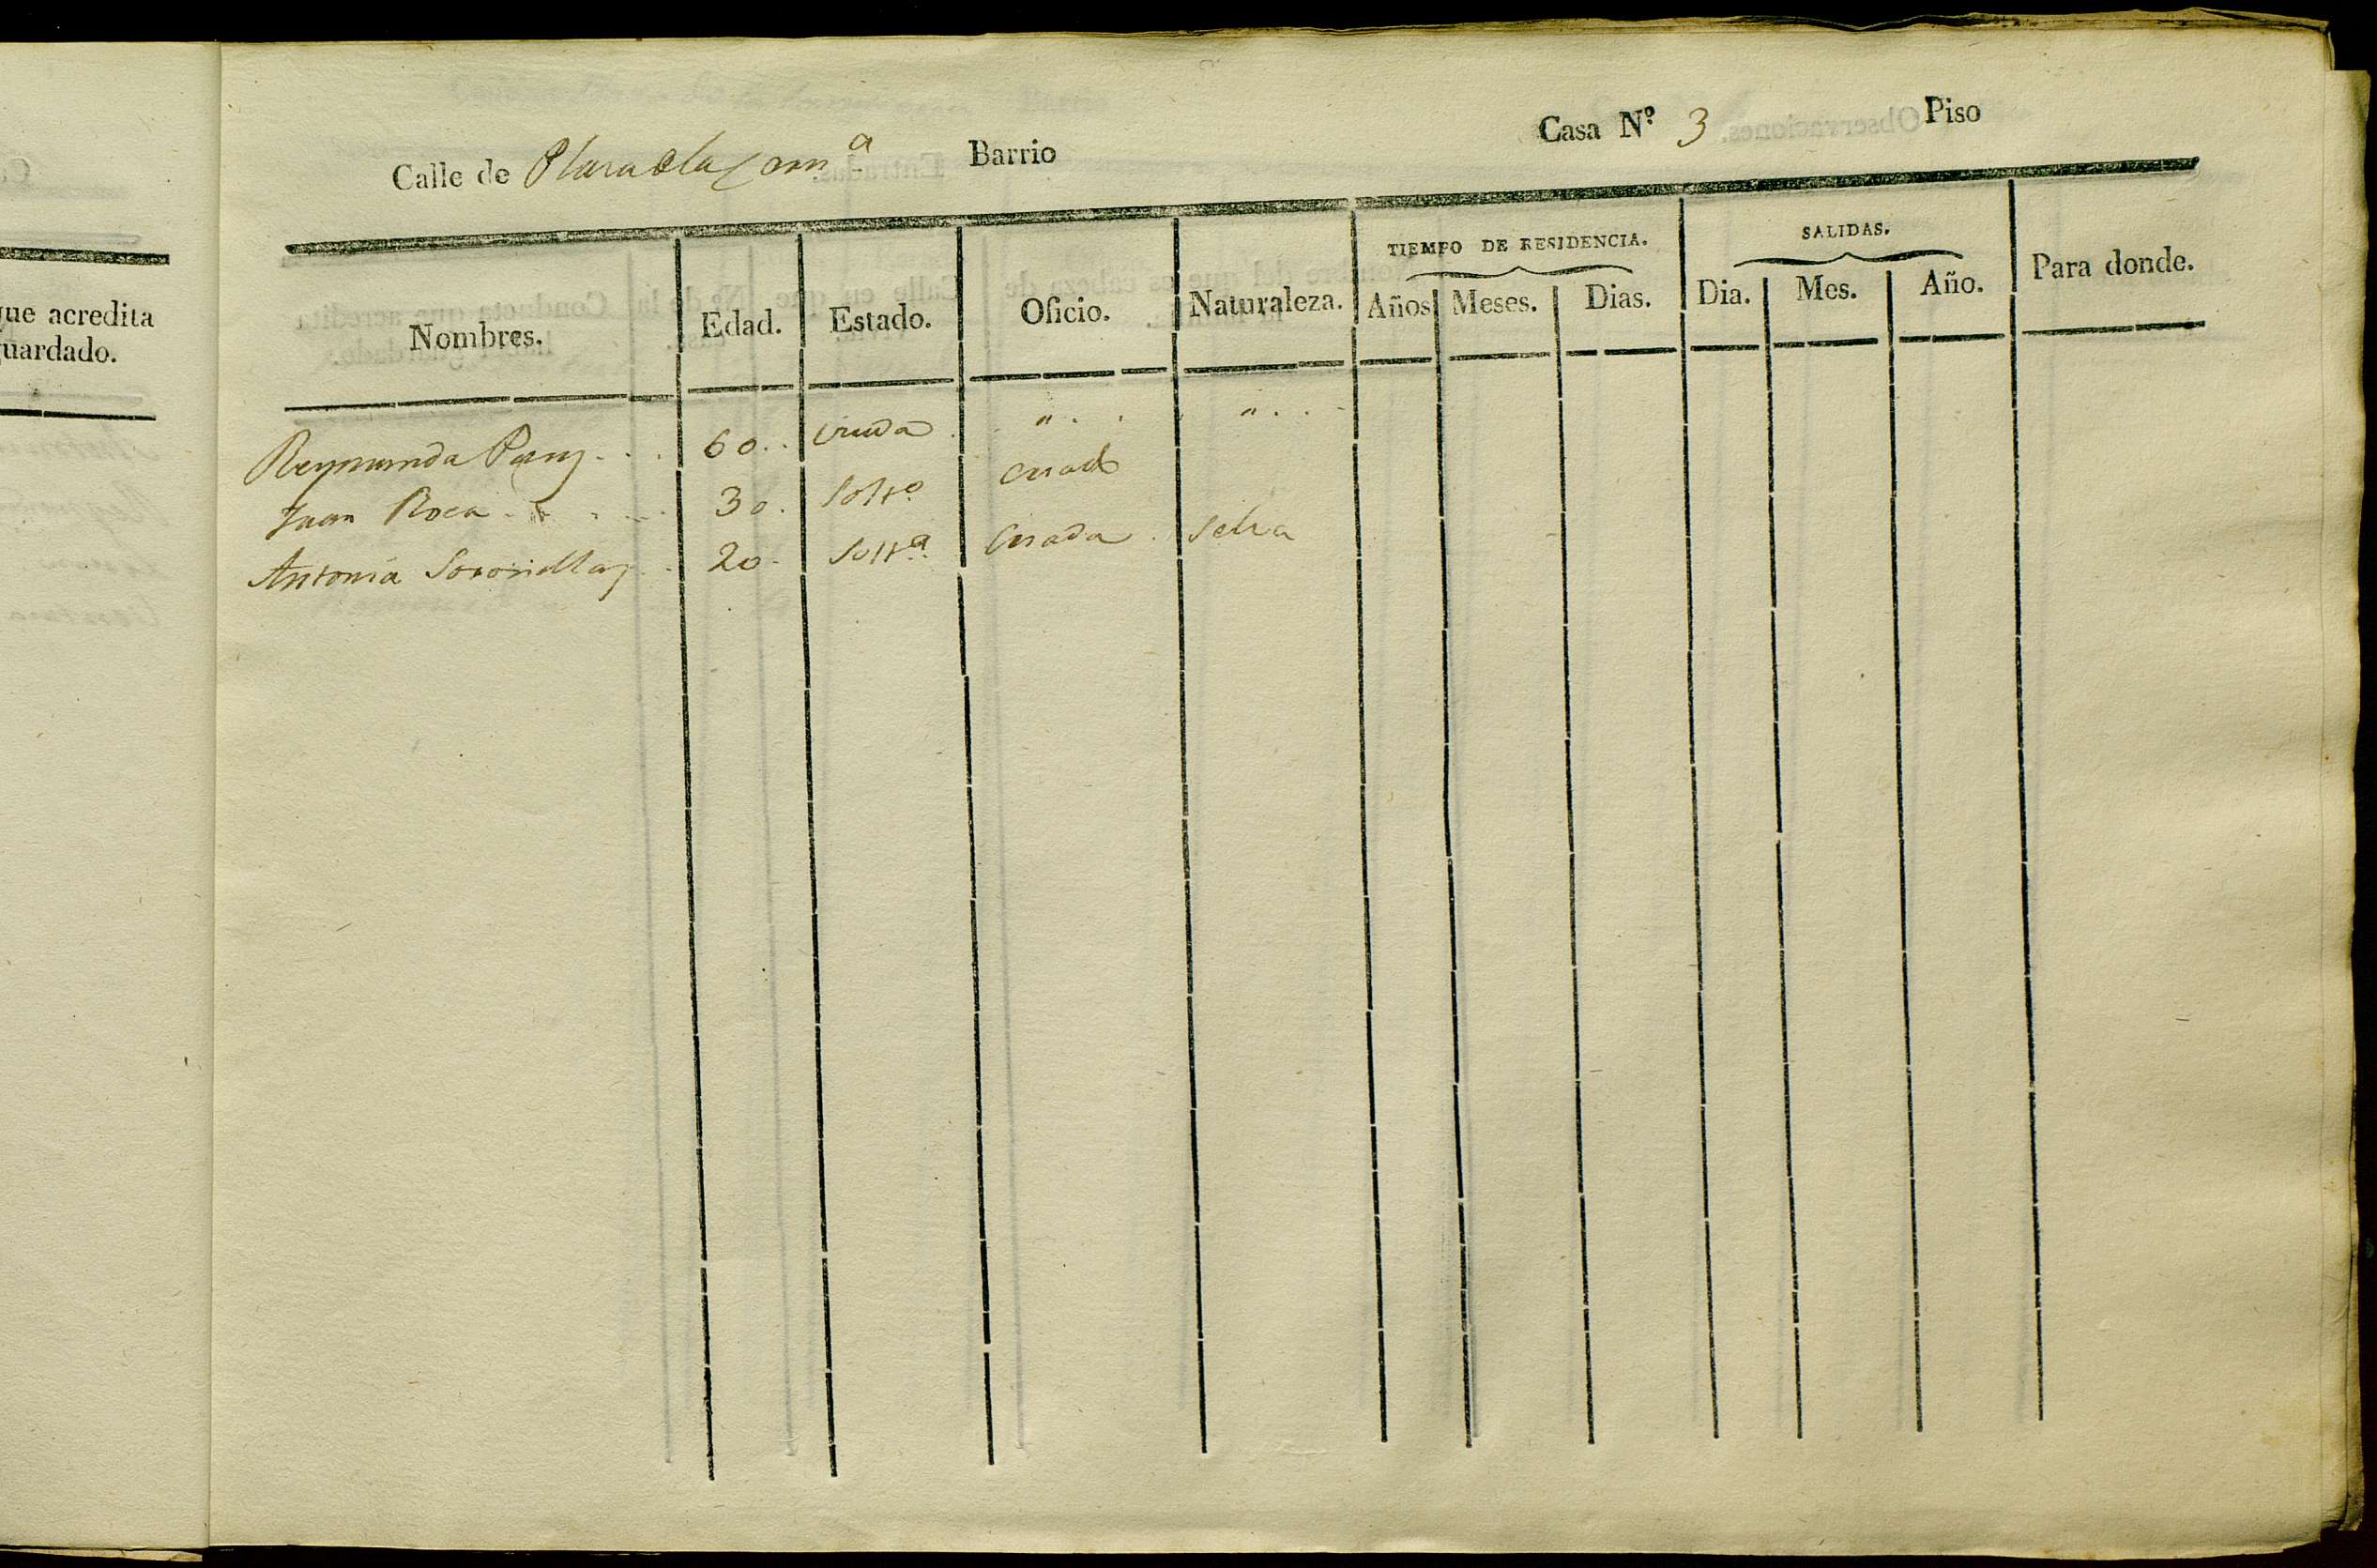 Calle de Barrio Casa N.º 3 Piso
TIEMPO DE RESIDENCIA. SALIDAS.
Nombres. Edad. Estado. Oficio. Naturaleza. Años Meses. Dias. Dia. Mes. Año. Para donde.
Reymunda 60.. viuda . " . . " . . .
Juan Roca 30. Solt.º criado
Antonia 20. Solt.ª Criada . Selva
que acredita
guardado.